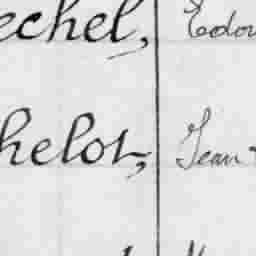 echel, Edou
helot, Jean